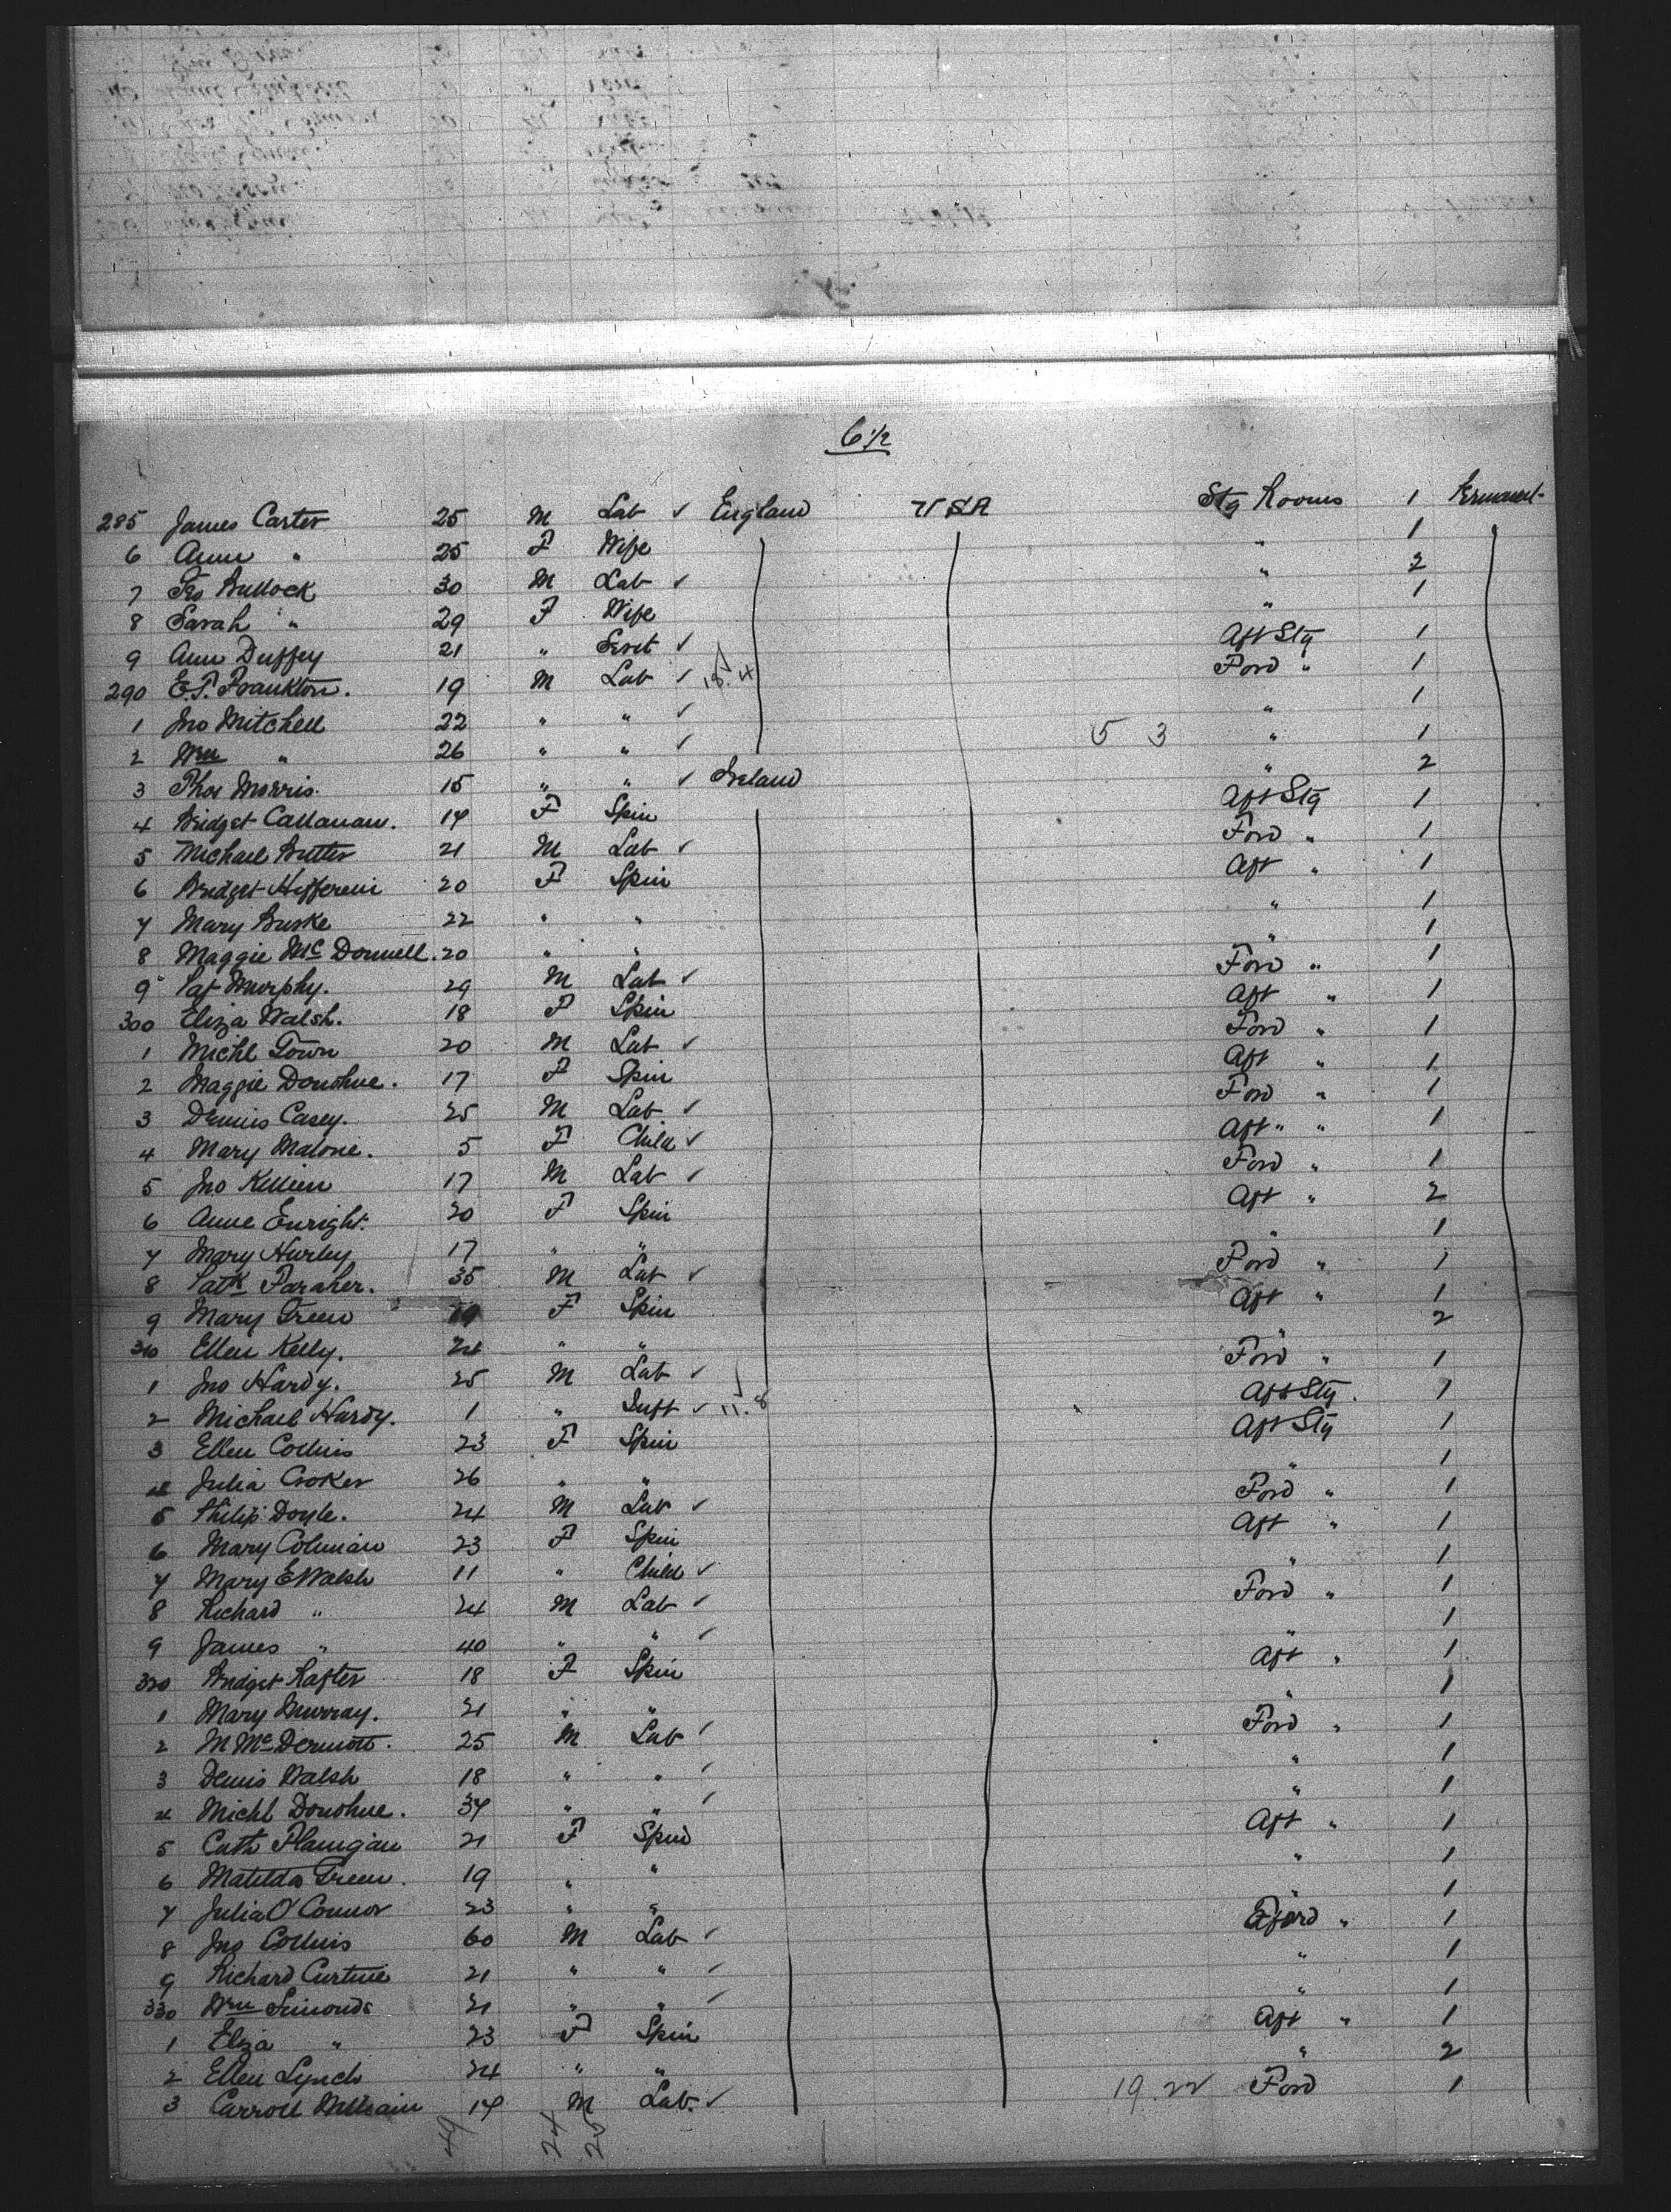 6 1/2
285 James Carter 25 M Lab ✓ England USA Stg Rooms 1 Permanent
6 Ann " 25 F Wife " 1
7 Geo Bullock 30 M Lab ✓ " 2
8 Sarah " 29 F Wife " 1
9 Ann Duffey 21 " Servt ✓ Aft Stg 1
290 E. T. Frankton. 19 M Lab ✓ 18.4 Ford " 1
1 Jno Mitchell 22 " " ✓ " 1
2 Wm " 26 " " ✓ 5 3 " 1
3 Thos Morris. 15 " " ✓ Ireland " 2
4 Bridget Callanan. 17 F Spin Aft Stg 1
5 Michael Butler 21 M Lab ✓ Ford " 1
6 Bridget 20 F Spin Aft " 1
7 Mary Burke 22 " " " 1
8 Maggie McDonnell. 20 " " " 1
9 Pat Murphy. 29 M Lab ✓ Ford " 1
300 Eliza Walsh. 18 F Spin Aft " 1
1 Michl 20 M Lab ✓ Ford " 1
2 Maggie Donohue. 17 F Spin Aft " 1
3 Dennis Casey. 25 M Lab ✓ Ford " 1
4 Mary Malone. 5 F Child ✓ Aft " " 1
5 Jno Killeen 17 M Lab ✓ Ford " 1
6 Anne Enright. 20 F Spin Aft " 2
7 Mary Hurley 17 " " " 1
8 Patk Faraher. 35 M Lab ✓ Ford " 1
9 Mary Green 19 F Spin Aft " 1
310 Ellen Kelly. 24 " " " 2
1 Jno Hardy. 25 M Lab ✓ Ford " 1
2 Michael Hardy. 1 " Inft ✓ 11.8 Aft Stg. 1
3 Ellen Collins 23 F Spin Aft Stg 1
4 Julia Croker 26 " " " 1
5 Philip Doyle. 24 M Lab ✓ Ford " 1
6 Mary Colman 23 F Spin Aft " 1
7 Mary E Walsh 11 " Child ✓ " 1
8 Richard " 24 M Lab ✓ Ford " 1
9 James " 40 " " ✓ " 1
320 Bridget Rafter 18 F Spin Aft " 1
1 Mary Murray. 21 " " " 1
2 M McDermott. 25 M Lab ✓ Ford " 1
3 Denis Walsh 18 " " ✓ " 1
4 Michl Donohue. 37 " " ✓ " 1
5 Cath Flanigan 21 F Spin Aft " 1
6 Matilda Green. 19 " " " 1
7 Julia O'Connor 23 " " " 1
8 Jno Collins 60 M Lab ✓ Ford " 1
9 Richard 21 " " ✓ " 1
330 Wm Simonds 21 " " ✓ " 1
1 Eliza " 23 F Spin Aft " 1
2 Ellen Lynch 24 " " " 2
3 Carroll 17 M Lab. ✓ 19.22 Ford 1
49 24 25